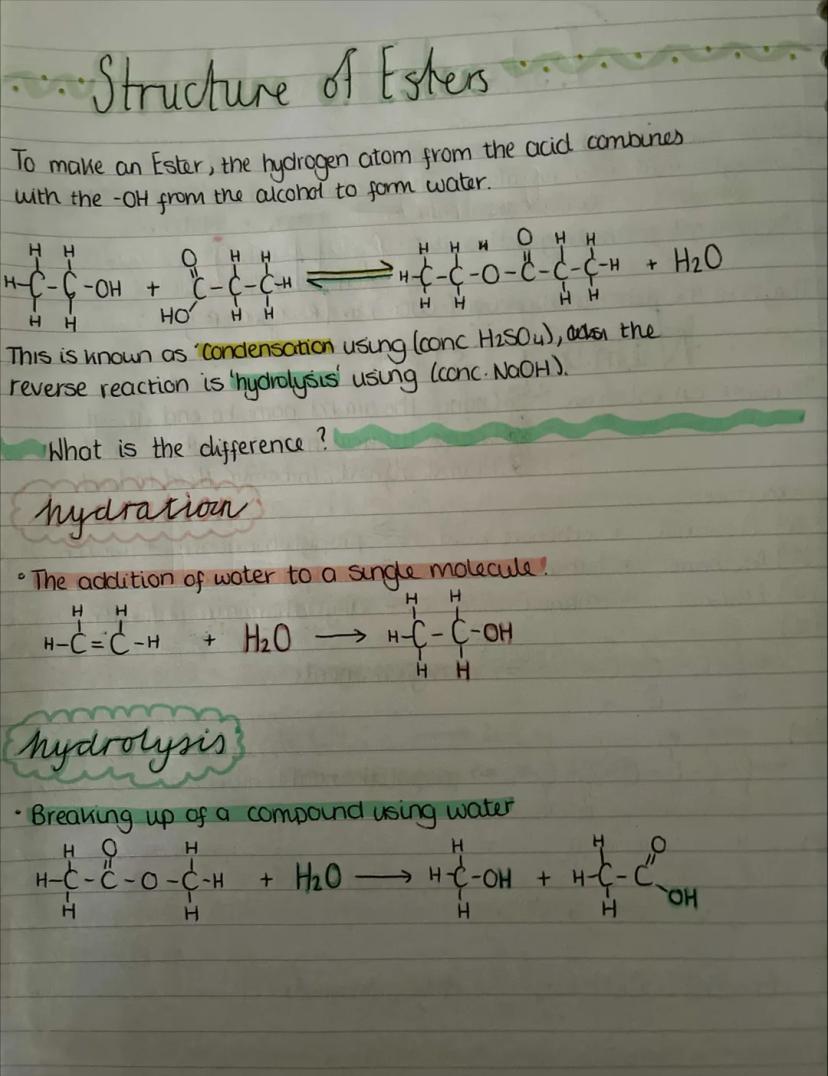 Structure of Esters
To make an Ester, the hydrogen atom from the acid combines
with the -OH from the alcohol to form water.
H H O H H H H H O H H
H-C-C-OH + C-C-C-H ⇌ H-C-C-O-C-C-C-H + H2O
H H HO H H H H H H
This is known as 'condensation using (conc H2SO4), the
reverse reaction is 'hydrolysis' using (conc. NaOH).
What is the difference?
hydration
• The addition of water to a single molecule!
H H H H
H-C=C-H + H2O → H-C-C-OH
H H
hydrolysis
• Breaking up of a compound using water
H O H H H O
H-C-C-O-C-H + H2O → H-C-OH + H-C-C
H H H H OH